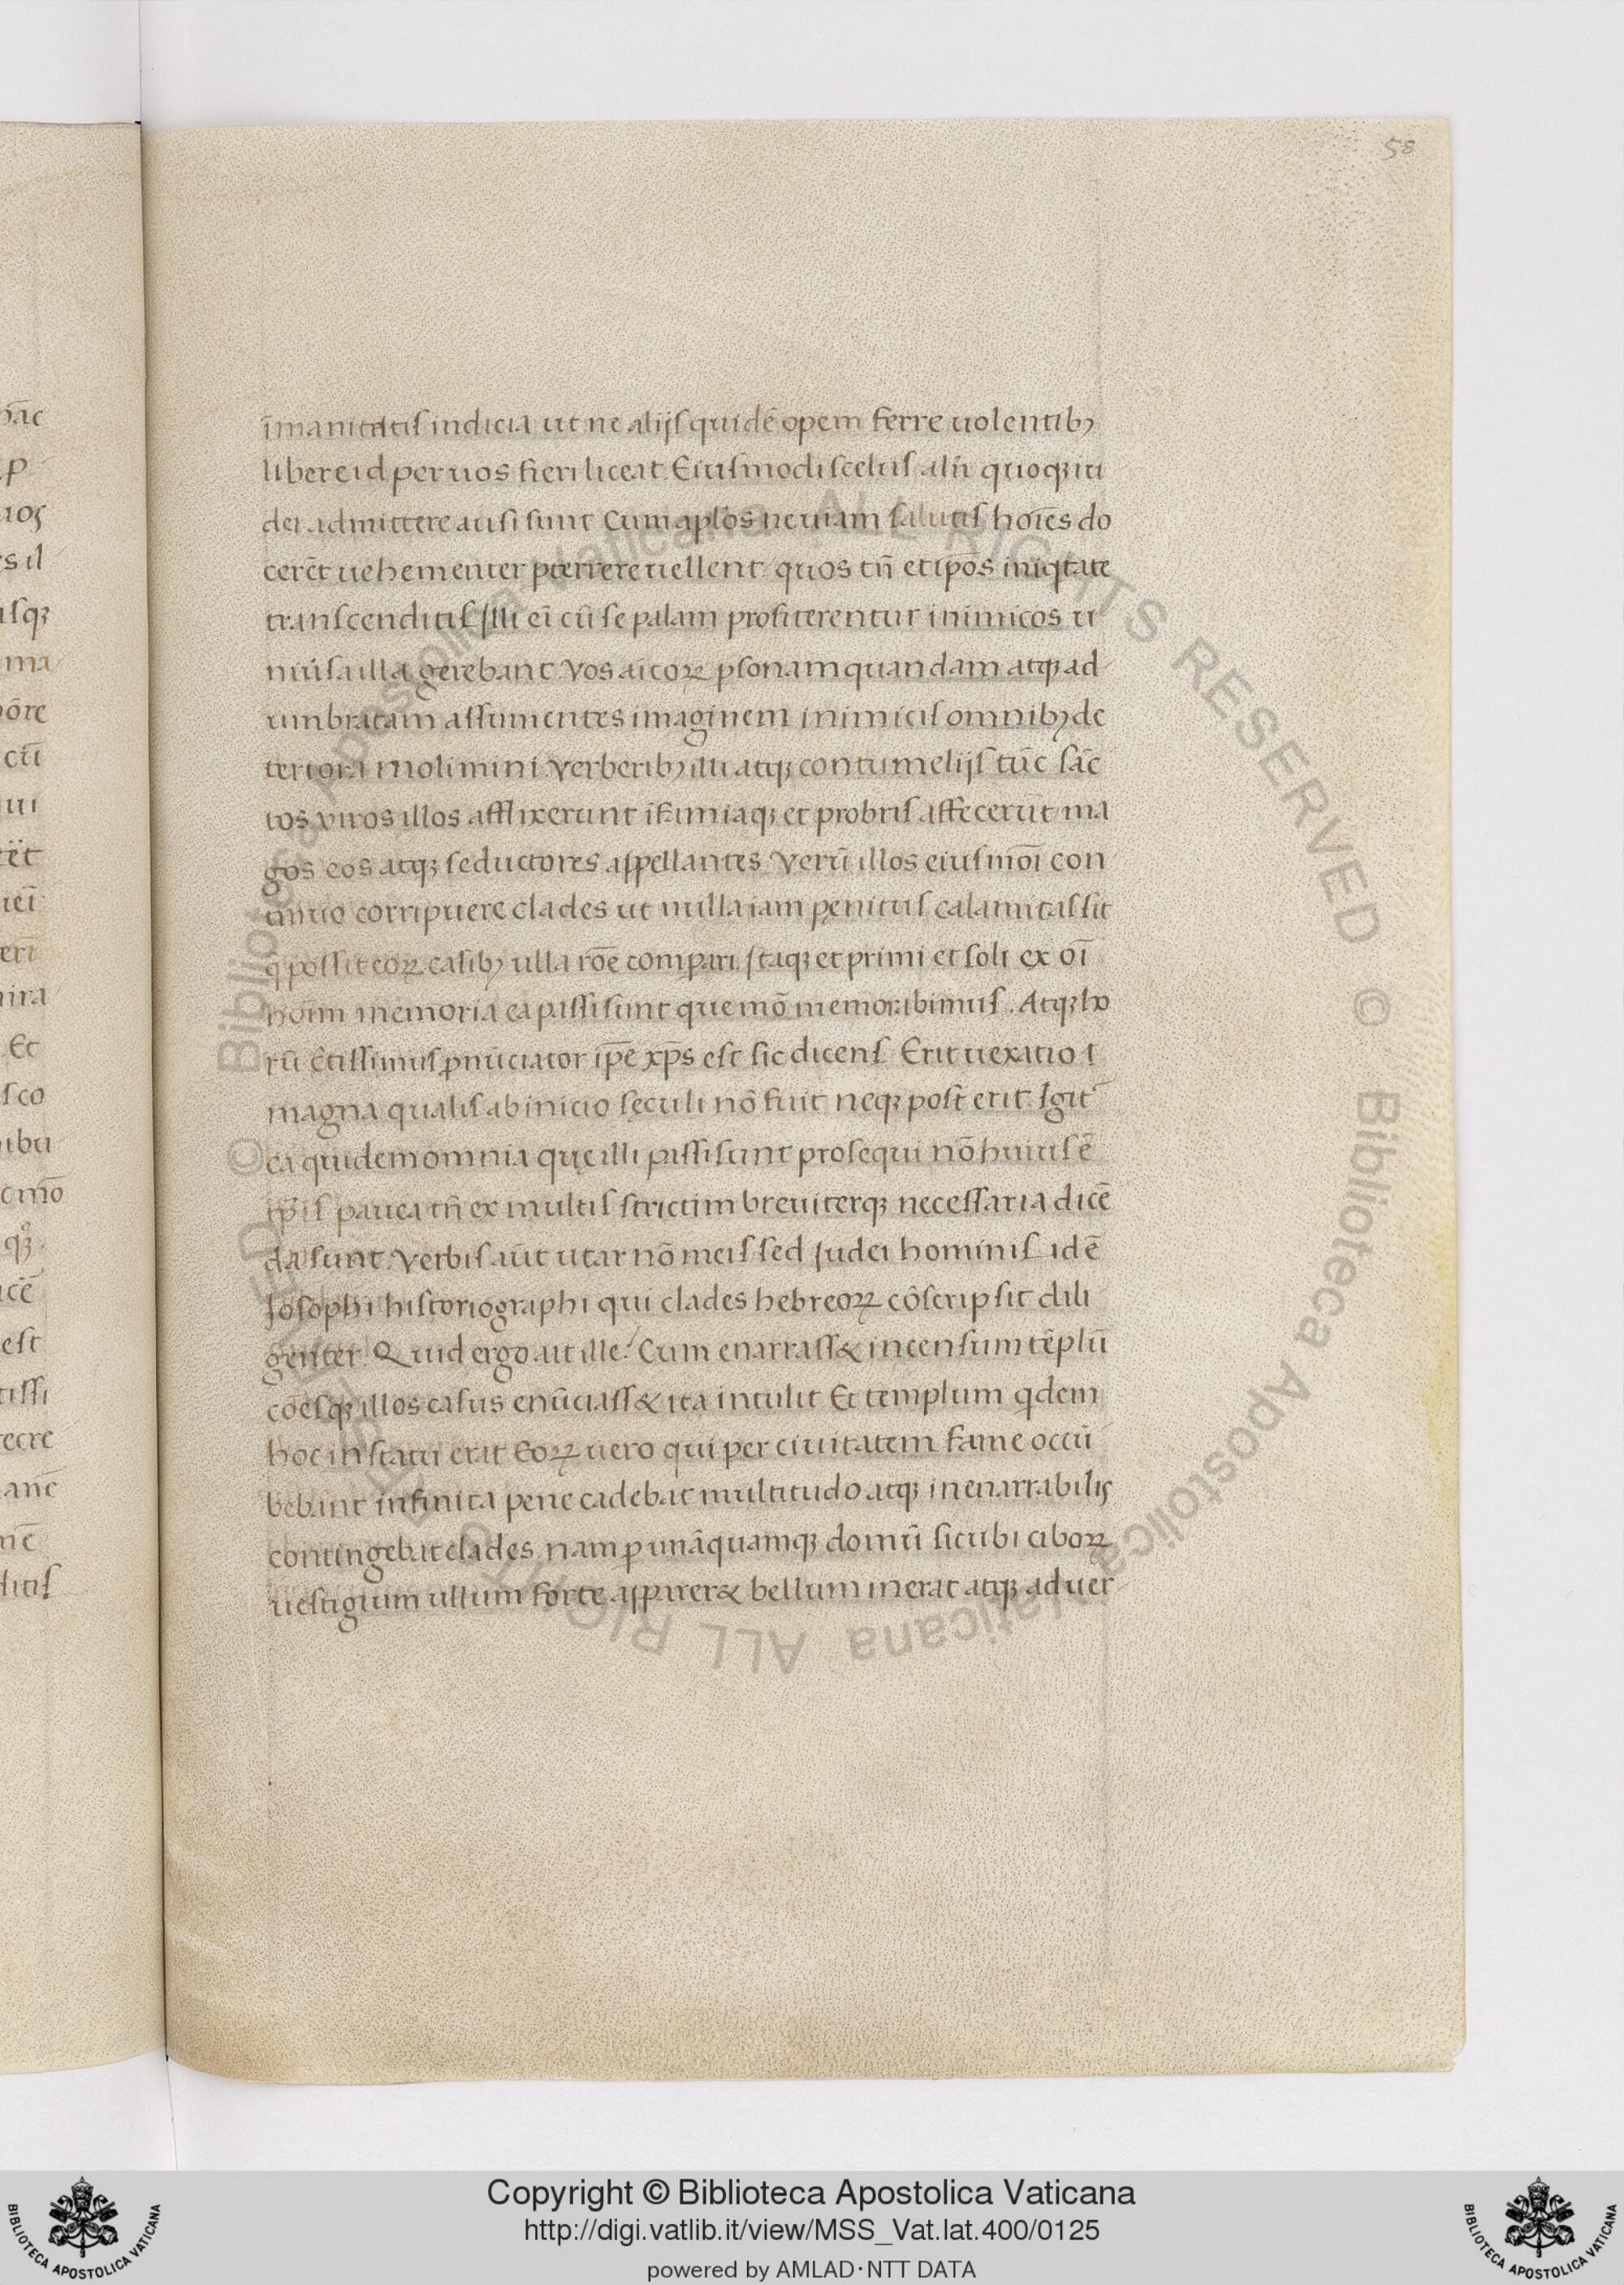 58
īmanitatis indicia ut ne alijs quidē opem ferre uolentibꝫ
libere id per uos fieri liceat. Eiusmodi scelus alii quoqꝫ iu
dei admittere ausi sunt Cum aplōs ne uiam salutis hoīes do
cerēt uehementer pterrere uellent: quos tn̄ et ipōs iniqtate
transcenditis Illi eī cū se palam profiterentur inimicos ti
niuſa illa gerebant Vos aīcoꝝ psonam quandam atqꝫ ad
umbratam assumentes imaginem inimicis omnibꝫ de
teriora molimini. Verberibꝫ illi atqꝫ contumelijs tūc sāc
tos viros illos afflixerunt īfamiaqꝫ et probris affecerūt ma
gos eos atqꝫ seductores appellantes Verū illos eiusmōi con
tinuo corripuere clades ut nulla iam penitus calamitas sit
q̄ possit eoꝝ casibꝫ ulla rōe comparari. Itaqꝫ et primi et soli ex oī
hoīm memoria ea passi sunt que mō memorabimus. Atqꝫ ho
rū c̄tissimus pnūciator ipē xp̄s est sic dicens Erit uexatio t
magna qualis ab inicio sęculi nō fuit neqꝫ post erit. Igit᷑
ea quidem omnia quę illi passi sunt prosequi nō huius ē
tp̄is pauca tn̄ ex multis strictim breuiterqꝫ necessaria dicē
da sunt. Verbis aūt utar nō meis sed Iudei hominis id ē
Iosophi historiographi qui clades hebreoꝝ cōscripsit dili
genter. Quid ergo ait ille? Cum enarrass& incensum tēplū
cōesqꝫ illos casus enūciass& ita intulit Et templum qdem
hoc in statu erat Eoꝝ uero qui per ciuitatem fame occū
bebant infinita pene cadebat multitudo atqꝫ inenarrabilis
contingebat clades nam p unāquamqꝫ domū sicubi ciboꝝ
uestigium ullum forte apparer& bellum inerat atqꝫ aduer
Copyright © Biblioteca Apostolica Vaticana
http://digi.vatlib.it/view/MSS_Vat.lat.400/0125
powered by AMLAD·NTT DATA